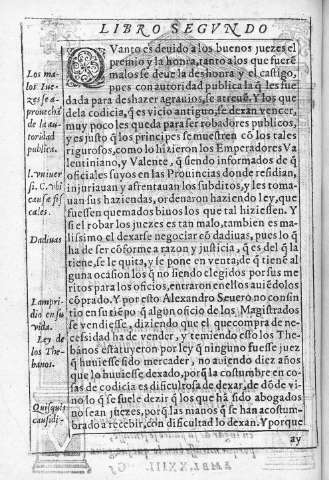 LIBRO SEGVNDO
QVanto es deuido a los buenos juezes el
premio y la honra, tanto a los que fuerē
malos se deue la deshonra y el castigo,
pues con autoridad publica la q̄ les fue
dada para deshazer agrauios, se atreuē. Y los que
de la codicia, q̄ es vicio antiguo, se dexan vencer,
muy poco les queda para ser robadores publicos,
y es justo q̄ los principes se muestren cō los tales
rigurosos, como lo hizieron los Emperadores Va
lentiniano, y Valente, q̄ siendo informados de q̄
oficiales suyos en las Prouincias donde residian,
injuriauan y afrentauan los subditos, y les toma-
uan sus haziendas, ordenaron haziendo ley, que
fuessen quemados biuos los que tal hiziessen. Y
si el robar los juezes es tan malo, tambien es ma
lissimo el dexarse negociar cō dadiuas, pues lo q̄
ha de ser cōforme a razon y justicia, q̄ es del q̄ la
tiene, se le quita, y se pone en venta, de q̄ tiene al
guna ocasion los q̄ no siendo elegidos por sus me
ritos para los oficios, entraron en ellos auiēdolos
cōprado. Y por esto Alexandro Seuero no consin
tio en su tiēpo q̄ algun oficio de los Magistrados
se vendiesse, diziendo que el que compra de ne-
cessidad ha de vender, y temiendo esto los The-
banos estatuyeron por ley q̄ ninguno fuesse juez
q̄ huuiesse sido mercader, no auiendo diez años
que lo huuiesse dexado, porq̄ la costumbre en co-
sas de codicia es dificultosa de dexar, de dōde vi-
no lo q̄ se suele dezir q̄ los que hā sido abogados
no sean juezes, porq̄ las manos q̄ se han acostum-
brado a recebir, con dificultad lo dexan. Y porque
ay
Los ma-
los Iue-
zes se a-
prouechā
de la au-
toridad
publica.
causæ fis
cales.
Dadiuas
Lampri-
dio en su
vida.
Ley de
los The-
banos.
Quisquis
causidi-